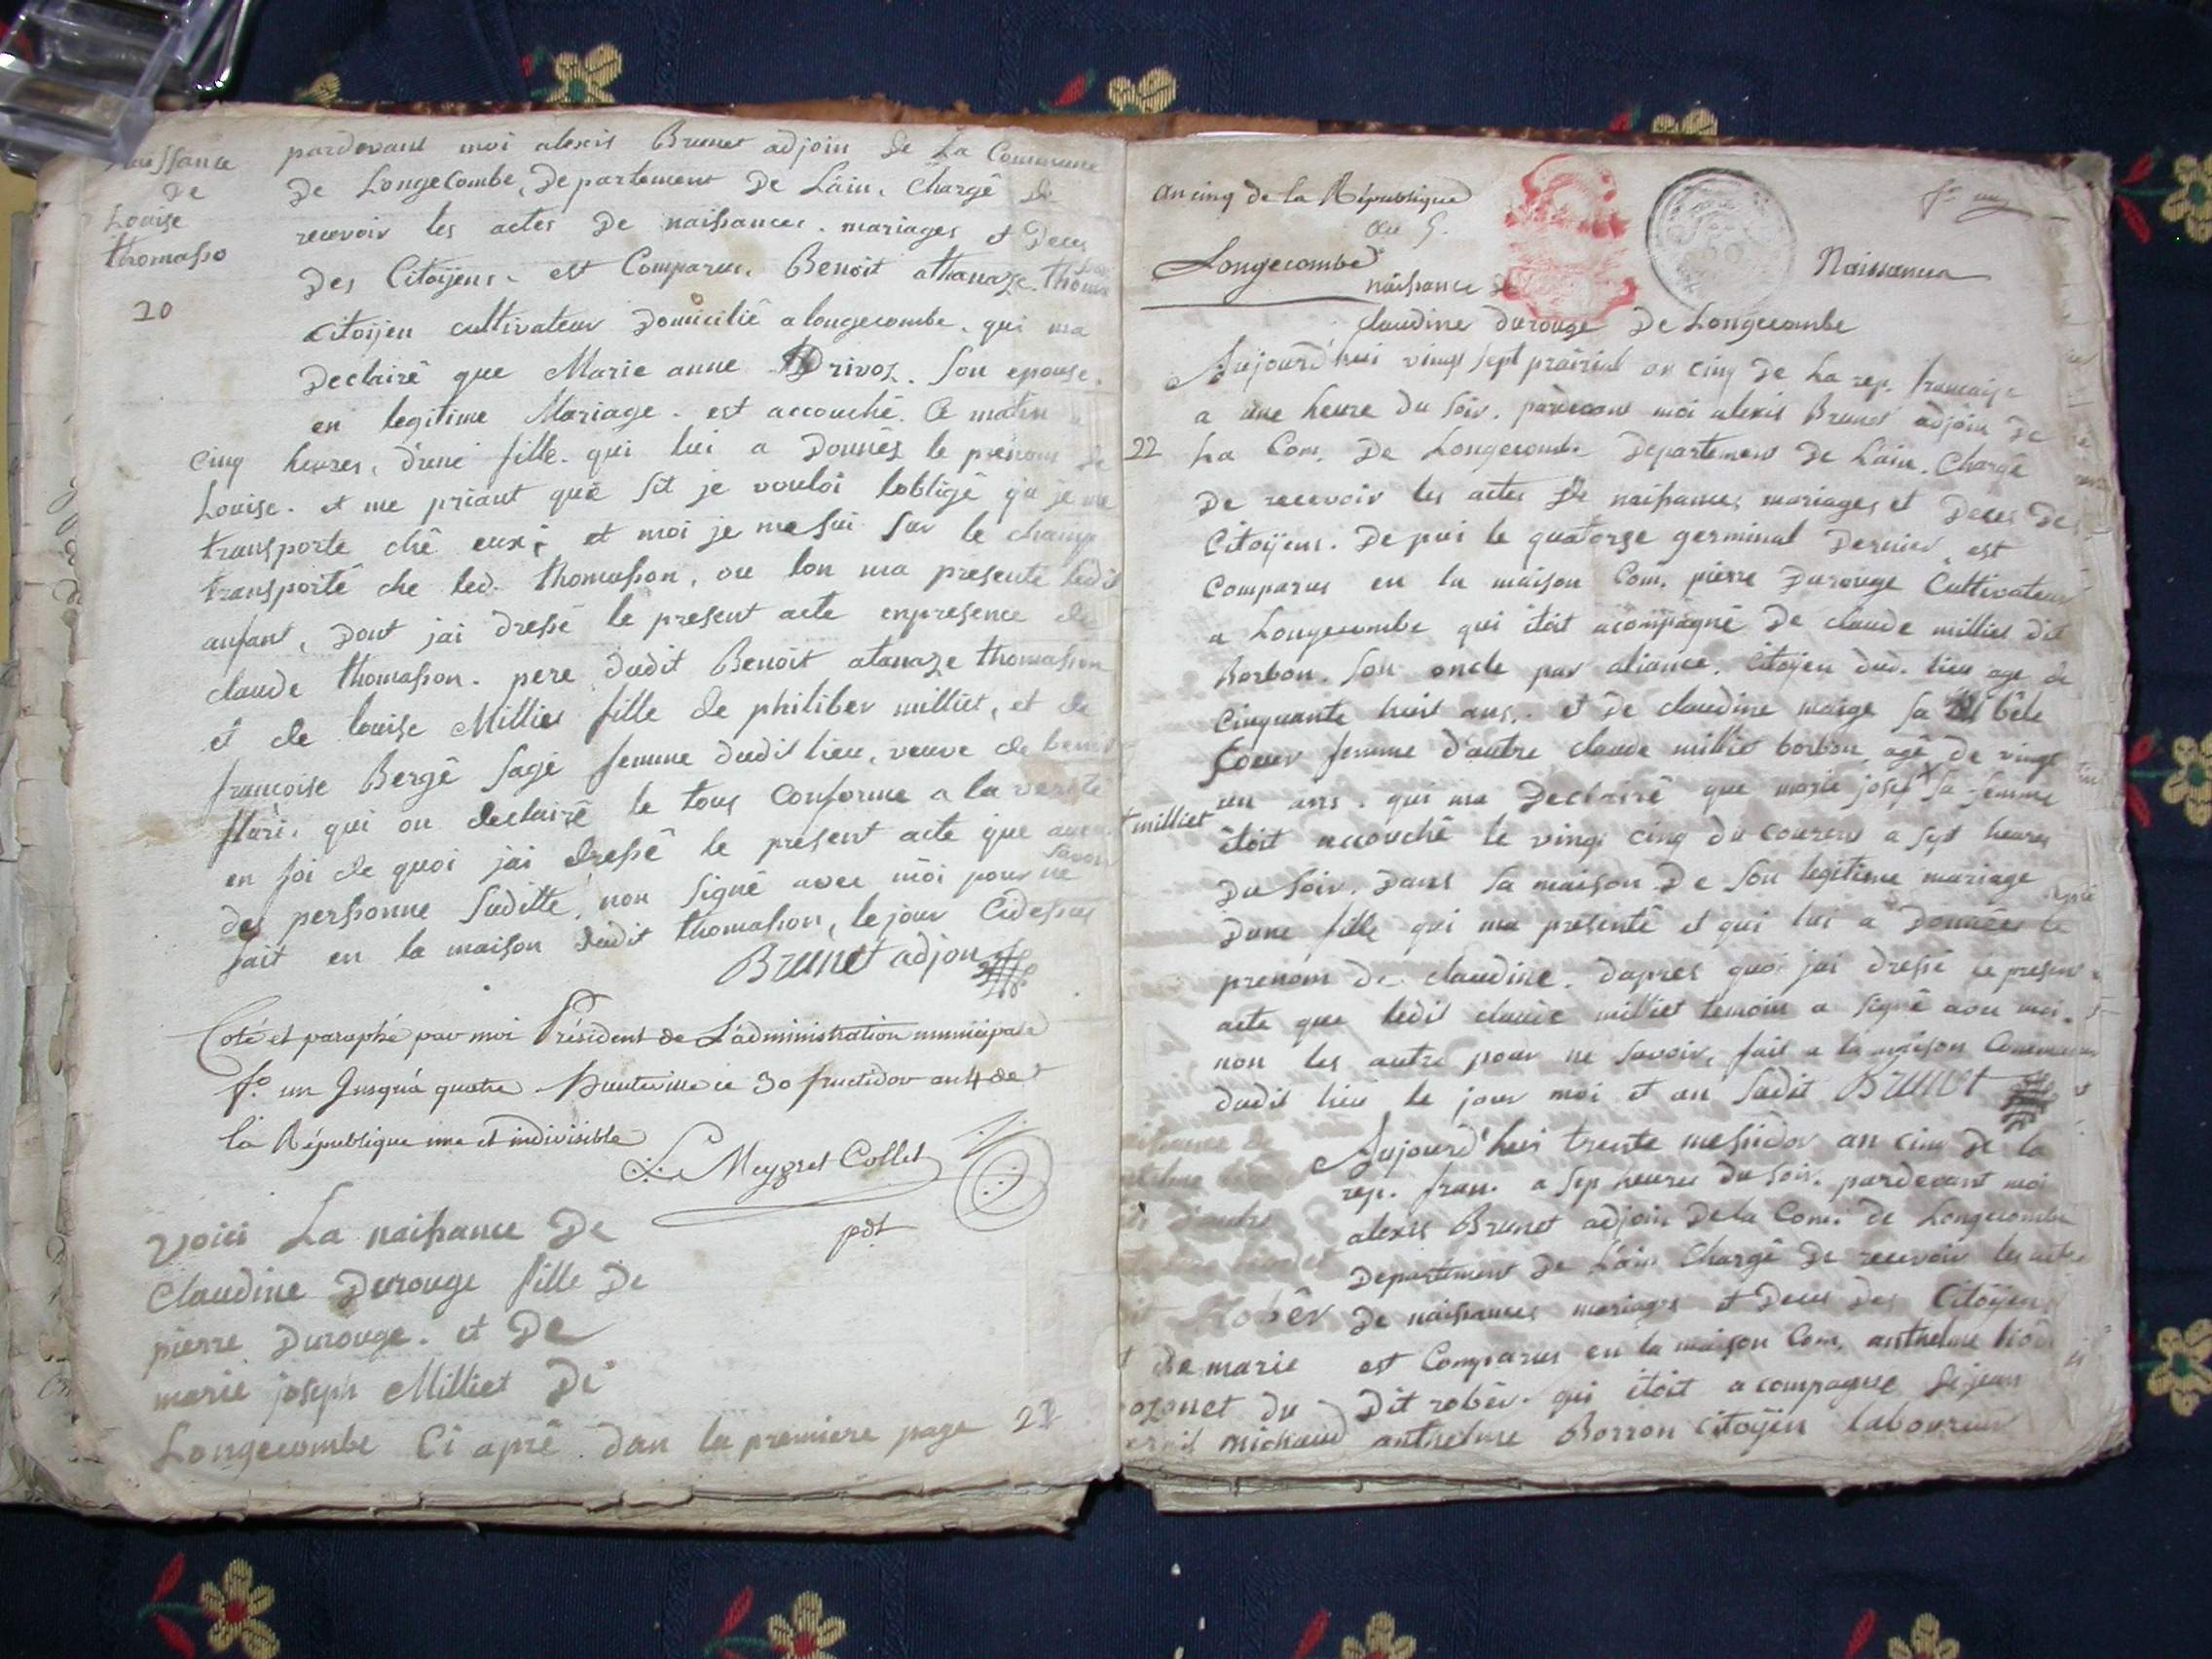 Naissance
De
Louise
thomasso
20
pardevant moi alexis Brunet adjoin de La Commune
De Longecombe, Departement De Lain, Chargé de
recevoir les actes De naissances. mariages et Deces
Des Citoÿens. est Comparus. Benoît athanaze. thomasson
Citoÿen cultivateur Domicilié a longecombe. qui ma
Declairé que Marie anne Drivoz. Son epouse.
en legitime Mariage. est accouché. Ce matin a
cinq heures, d'une fille. qui lui a Donnés le prenom de
Louise. et me priant que sit je vouloi lobligé qu je me
transporte ché eux; et moi je me sui sur le champ
transporté che led. thomasson, ou lon ma presenté ledit
anfant, Dont jai dressé le present acte enpresence de
claude thomasson. pere dudit Benoit atanaze thomasson
et de louise Milliet fille de philiber milliet, et de
francoise Bergé sage femme dudit lieu, veuve de benoit
flari, qui on declairé le tous Conforme a la verité
en foi de quoi jai dressé le present acte que aucu
des perssonne suditte, non signé avec möi pour ne savoir
fait en la maison dudit thomasson, le jour Cidessus
Brunet adjon
Coté et paraphé par moi Président de L'administration municipale
f.o un Jusqu'a quatre hauteville ce 30 fructidor an 4 de
la République une et indivisible
Le Meygret Collet
pdt
voici La naissance De
Claudine Durouge fille De
pierre Durouge. et De
marie joseph Milliet De
Longecombe Ci aprè. dan la premiere page 21
An cinq de la République
an 5.
f.o un
Longecombe
Naissances
naissance de
claudine durouge De Longecombe
Aujourd'hui vingt sept prairial an cinq De La rep. francaise
a une heure du soir. pardevant moi alexis Brunet adjoin De
22
La Com. De Longecombe Departement De Lain. Chargé
De recevoir les actes De naissances mariages et Deces Des
Citoÿens. De pui le quatorze germinal Dernier, est
Comparus en la maison Com. pierre Durouge Cultivateur
a Longecombe qui étoit acompagné De claude milliet dit
Borbon. son oncle par aliance. Citoÿen dud. lieu age de
Cinquante huit ans. et De claudine maige sa bêle
soeur femme d'autre claude milliet borbon, agé de vingt
un ans. qui ma Declairé que marie josep sa femme
milliet
étoit accouché le vingt cinq du courent a sept heures
Du soir. Dans sa maison De son legitime mariage
Dune fille qui ma presenté et qui lui a Donnée le
prenom de claudine. dapres quoi jai dressé le present
acte que ledit claude milliet temoin a signé avec moi.
non les autre pour ne savoir, fait a la maison Commune
dudit lieu le jour moi et an sudit Brunet
Aujourd'hui trente messidor an cinq De la
rep. fran. a sep heures du soir. pardevant moi
alexis Brunet adjoin De la Com. de Longecombe
Departement De Lain Chargé De recevoir les actes
Robêr
De naissances mariages et Deces Des Citoÿens
de marie
est Comparus en la maison Com. anthelme
du
Dit robêr. qui étoit acompagné De jean
michaud
anthelme Borron Citoÿen laboureur